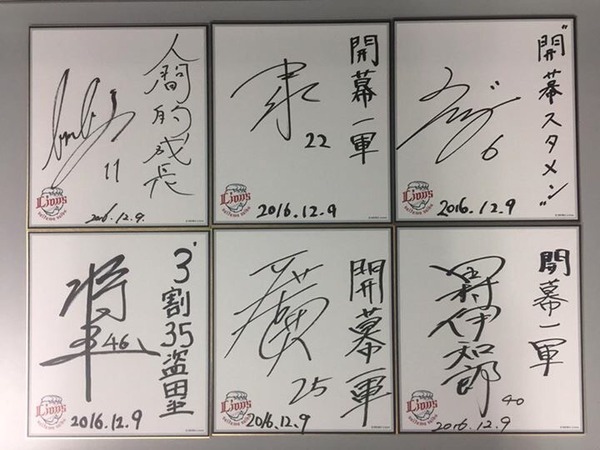 人間的成長
11
Lions
2016.12.9
開幕一軍
22
Lions
2016.12.9
"開幕スタメン"
6
Lions
2016.12.9
3割35盗塁王
46
Lions
2016.12.9
開幕一軍
25
Lions
2016.12.9
開幕一軍
田村伊知郎
40
Lions
2016.12.9